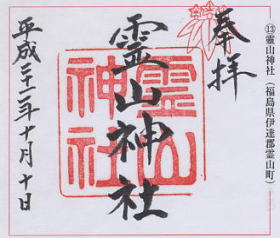 ⑬霊山神社（福島県伊達郡霊山町）
奉拝
霊山神社
霊山神社
平成二十二年十月十日